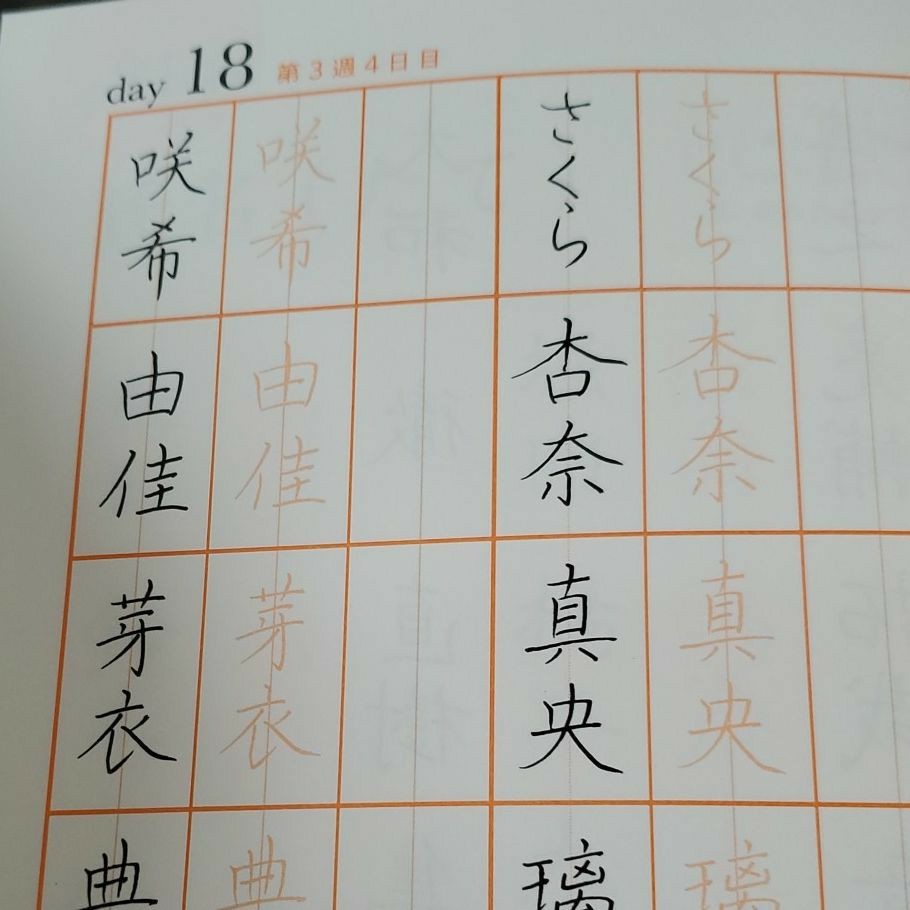 day 18 第3週4日目
咲希 咲希 さくら さくら
由佳 由佳 杏奈 杏奈
芽衣 芽衣 真央 真央
典 典 璃 璃